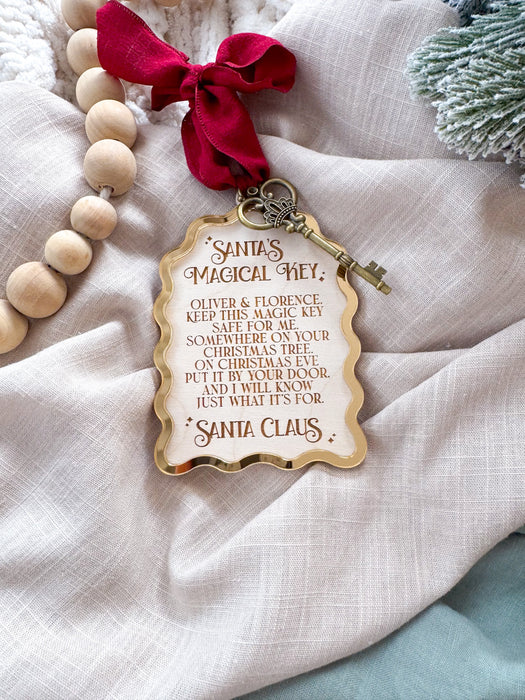 SANTA'S
MAGICAL KEY
OLIVER & FLORENCE.
KEEP THIS MAGIC KEY
SAFE FOR ME.
SOMEWHERE ON YOUR
CHRISTMAS TREE.
ON CHRISTMAS EVE
PUT IT BY YOUR DOOR.
AND I WILL KNOW
JUST WHAT IT'S FOR.
SANTA CLAUS